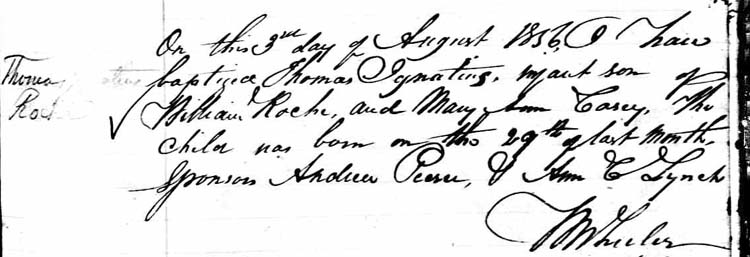 On this 3rd day of August 1856, I have
Thomas Ignatius
baptized Thomas Ignatius, infant son of
Roche
William Roche, and Mary Ann Casey. The
child was born on the 29th of last month.
Sponsors Andrew Pierse, & Ann C Lynch
Wheeler